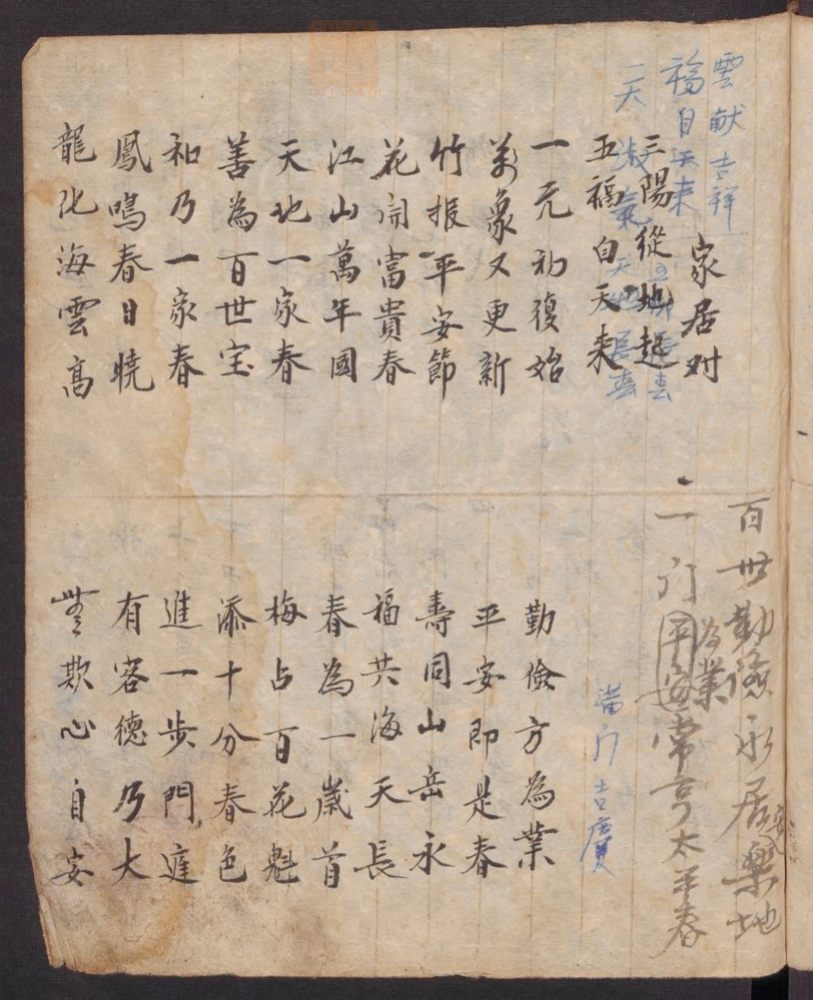 雲献吉祥
福自天来
家居对
三陽從地起
五福自天来
一元初復始
萬象又更新
竹报平安節
花開富貴春
江山萬年國
天地一家春
善為百世宝
和乃一家春
鳳鳴春日暁
龍化海雲高
百世勤儉永居樂地
為業
一门平安常亨太平春
满门吉慶
勤儉方為業
平安即是春
壽同山岳永
福共海天長
春為一歲首
梅占百花魁
添十分春色
進一步門庭
有容德乃大
無欺心自安